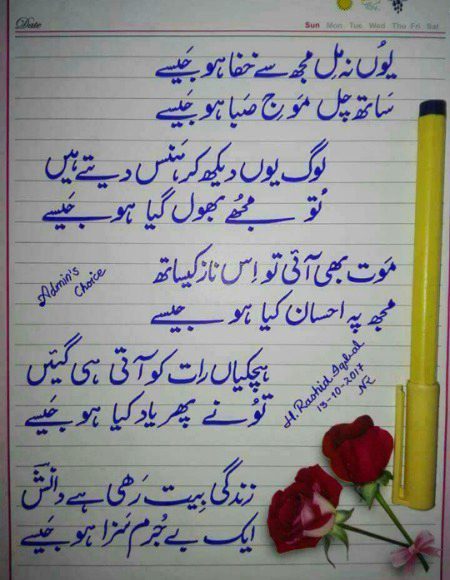 Date
Sun Mon Tue Wed Thu Fri Sat
یوُں نہ مِل مجھ سے خفا ہو جَیسے
سَاتھ چل مَوجِ صَبا ہو جَیسے
لوگ یوں دیکھ کر ہَنس دیتے ہیں
تُو مجُھے بھول گیا ہو جَیسے
مَوت بھی آئی تو اِس ناز کیساتھ
مجھ پہ احسان کیا ہو جیسے
Admin's
Choice
ہچکیاں رات کو آتی ہی گئیں
تُو نے پھر یاد کیا ہو جَیسے
H. Rashid Iqbal
13-10-2017
NR
زندگی بِیت رَھی ہے دانشؔ
ایک بے جُرم سَزا ہو جَیسے